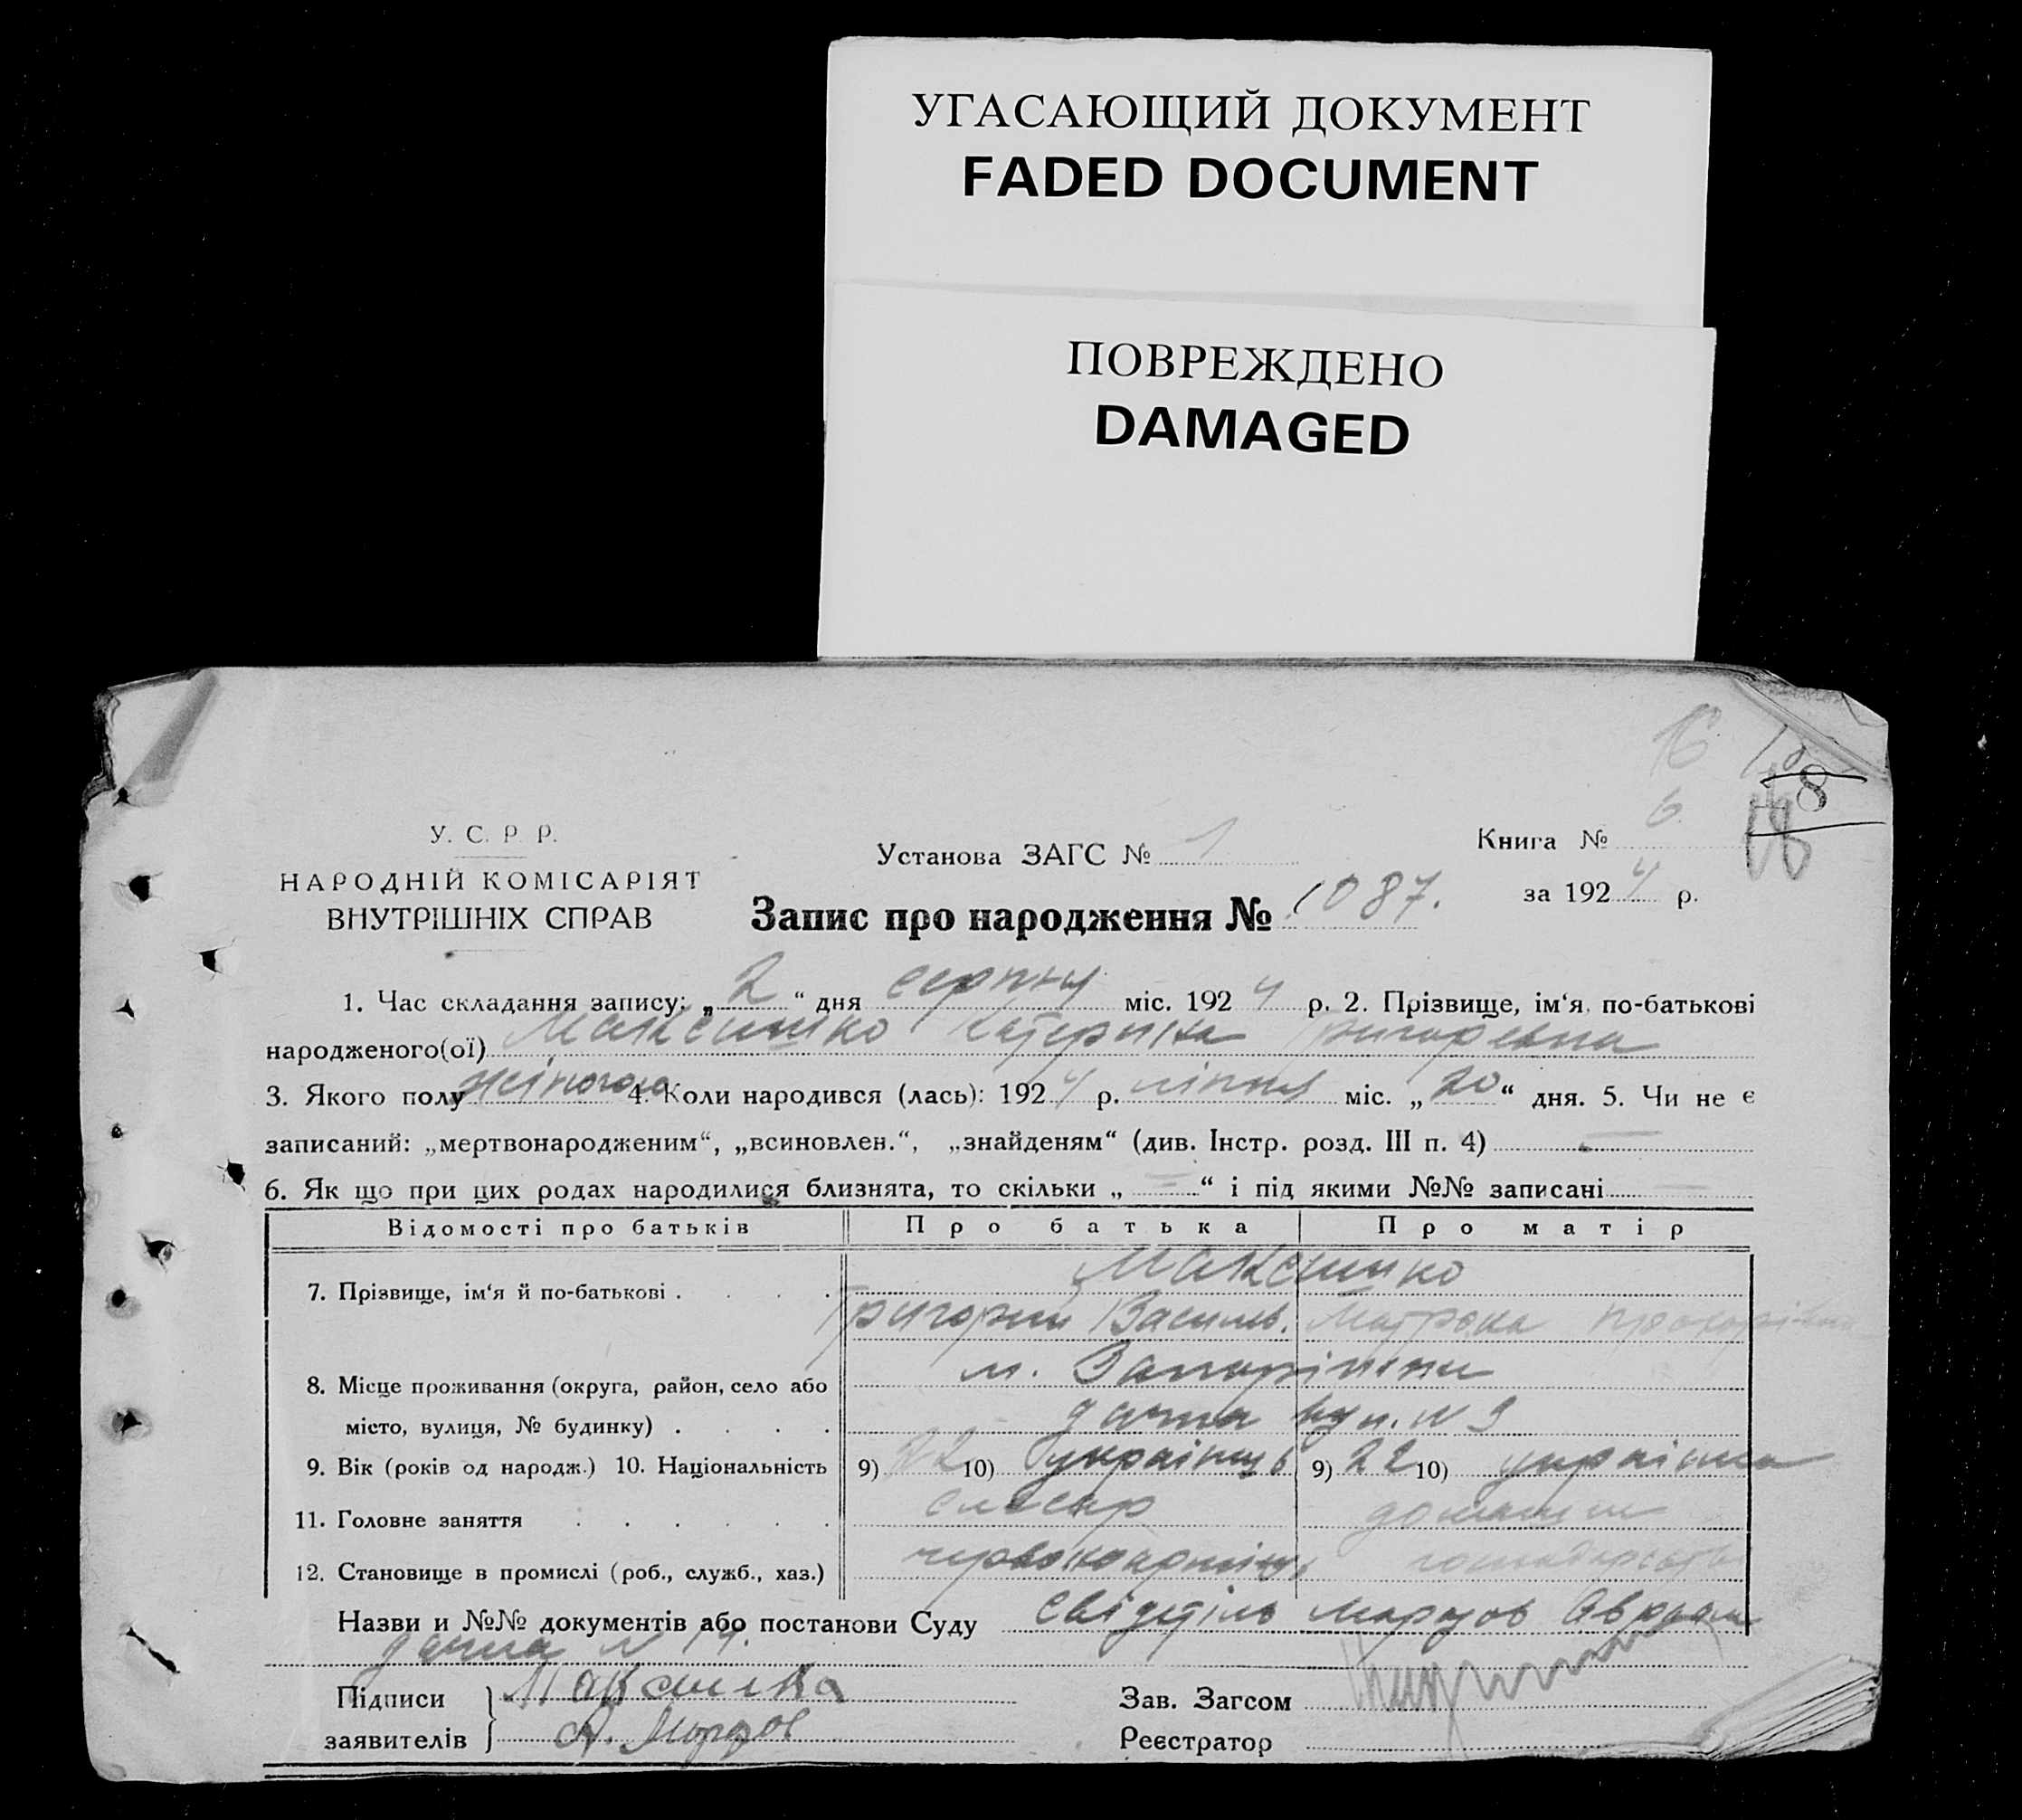 УГАСАЮЩИЙ ДОКУМЕНТ
FADED DOCUMENT
ПОВРЕЖДЕНО
DAMAGED
16
8
18
У. С. Р. Р.
НАРОДНІЙ КОМІСАРІЯТ
ВНУТРІШНІХ СПРАВ
Установа ЗАГС № 1
Книга № 6.
за 1924 р.
Запис про народження № 1087.
1. Час складання запису: „2“ дня серпня міс. 1924 р. 2. Прізвище, ім‘я, по-батькові
народженого(ої) Максимко Катерина Григоревна
3. Якого полу жіночого 4. Коли народився (лась): 1924 р. ліпня міс. „20“ дня. 5. Чи не є
записаний: „мертвонародженим“, „всиновлен.“, „знайденям“ (див. Інстр. розд. III п. 4) —
6. Як що при цих родах народилися близнята, то скільки „—“ і під якими №№ записані —
Відомості про батьків Про батька Про матір
7. Прізвище, ім‘я й по-батькові . . . . Максимко
Григорий Василь. Мотрона Прохорівна
8. Місце проживання (округа, район, село або м. Запоріжжи
місто, вулиця, № будинку) . . . . дачна вул. № 9
9. Вік (років од народж.) 10. Національність 9) 22 10) українець 9) 22 10) українка
11. Головне заняття . . . . . . слесар домашн
12. Становище в промислі (роб., служб., хаз.) господарство
Назви и №№ документів або постанови Суду свідітіль Морозов Абрам
дачна № 14.
Підписи Максимка
заявителів А. Морозов
Зав. Загсом
Реєстратор